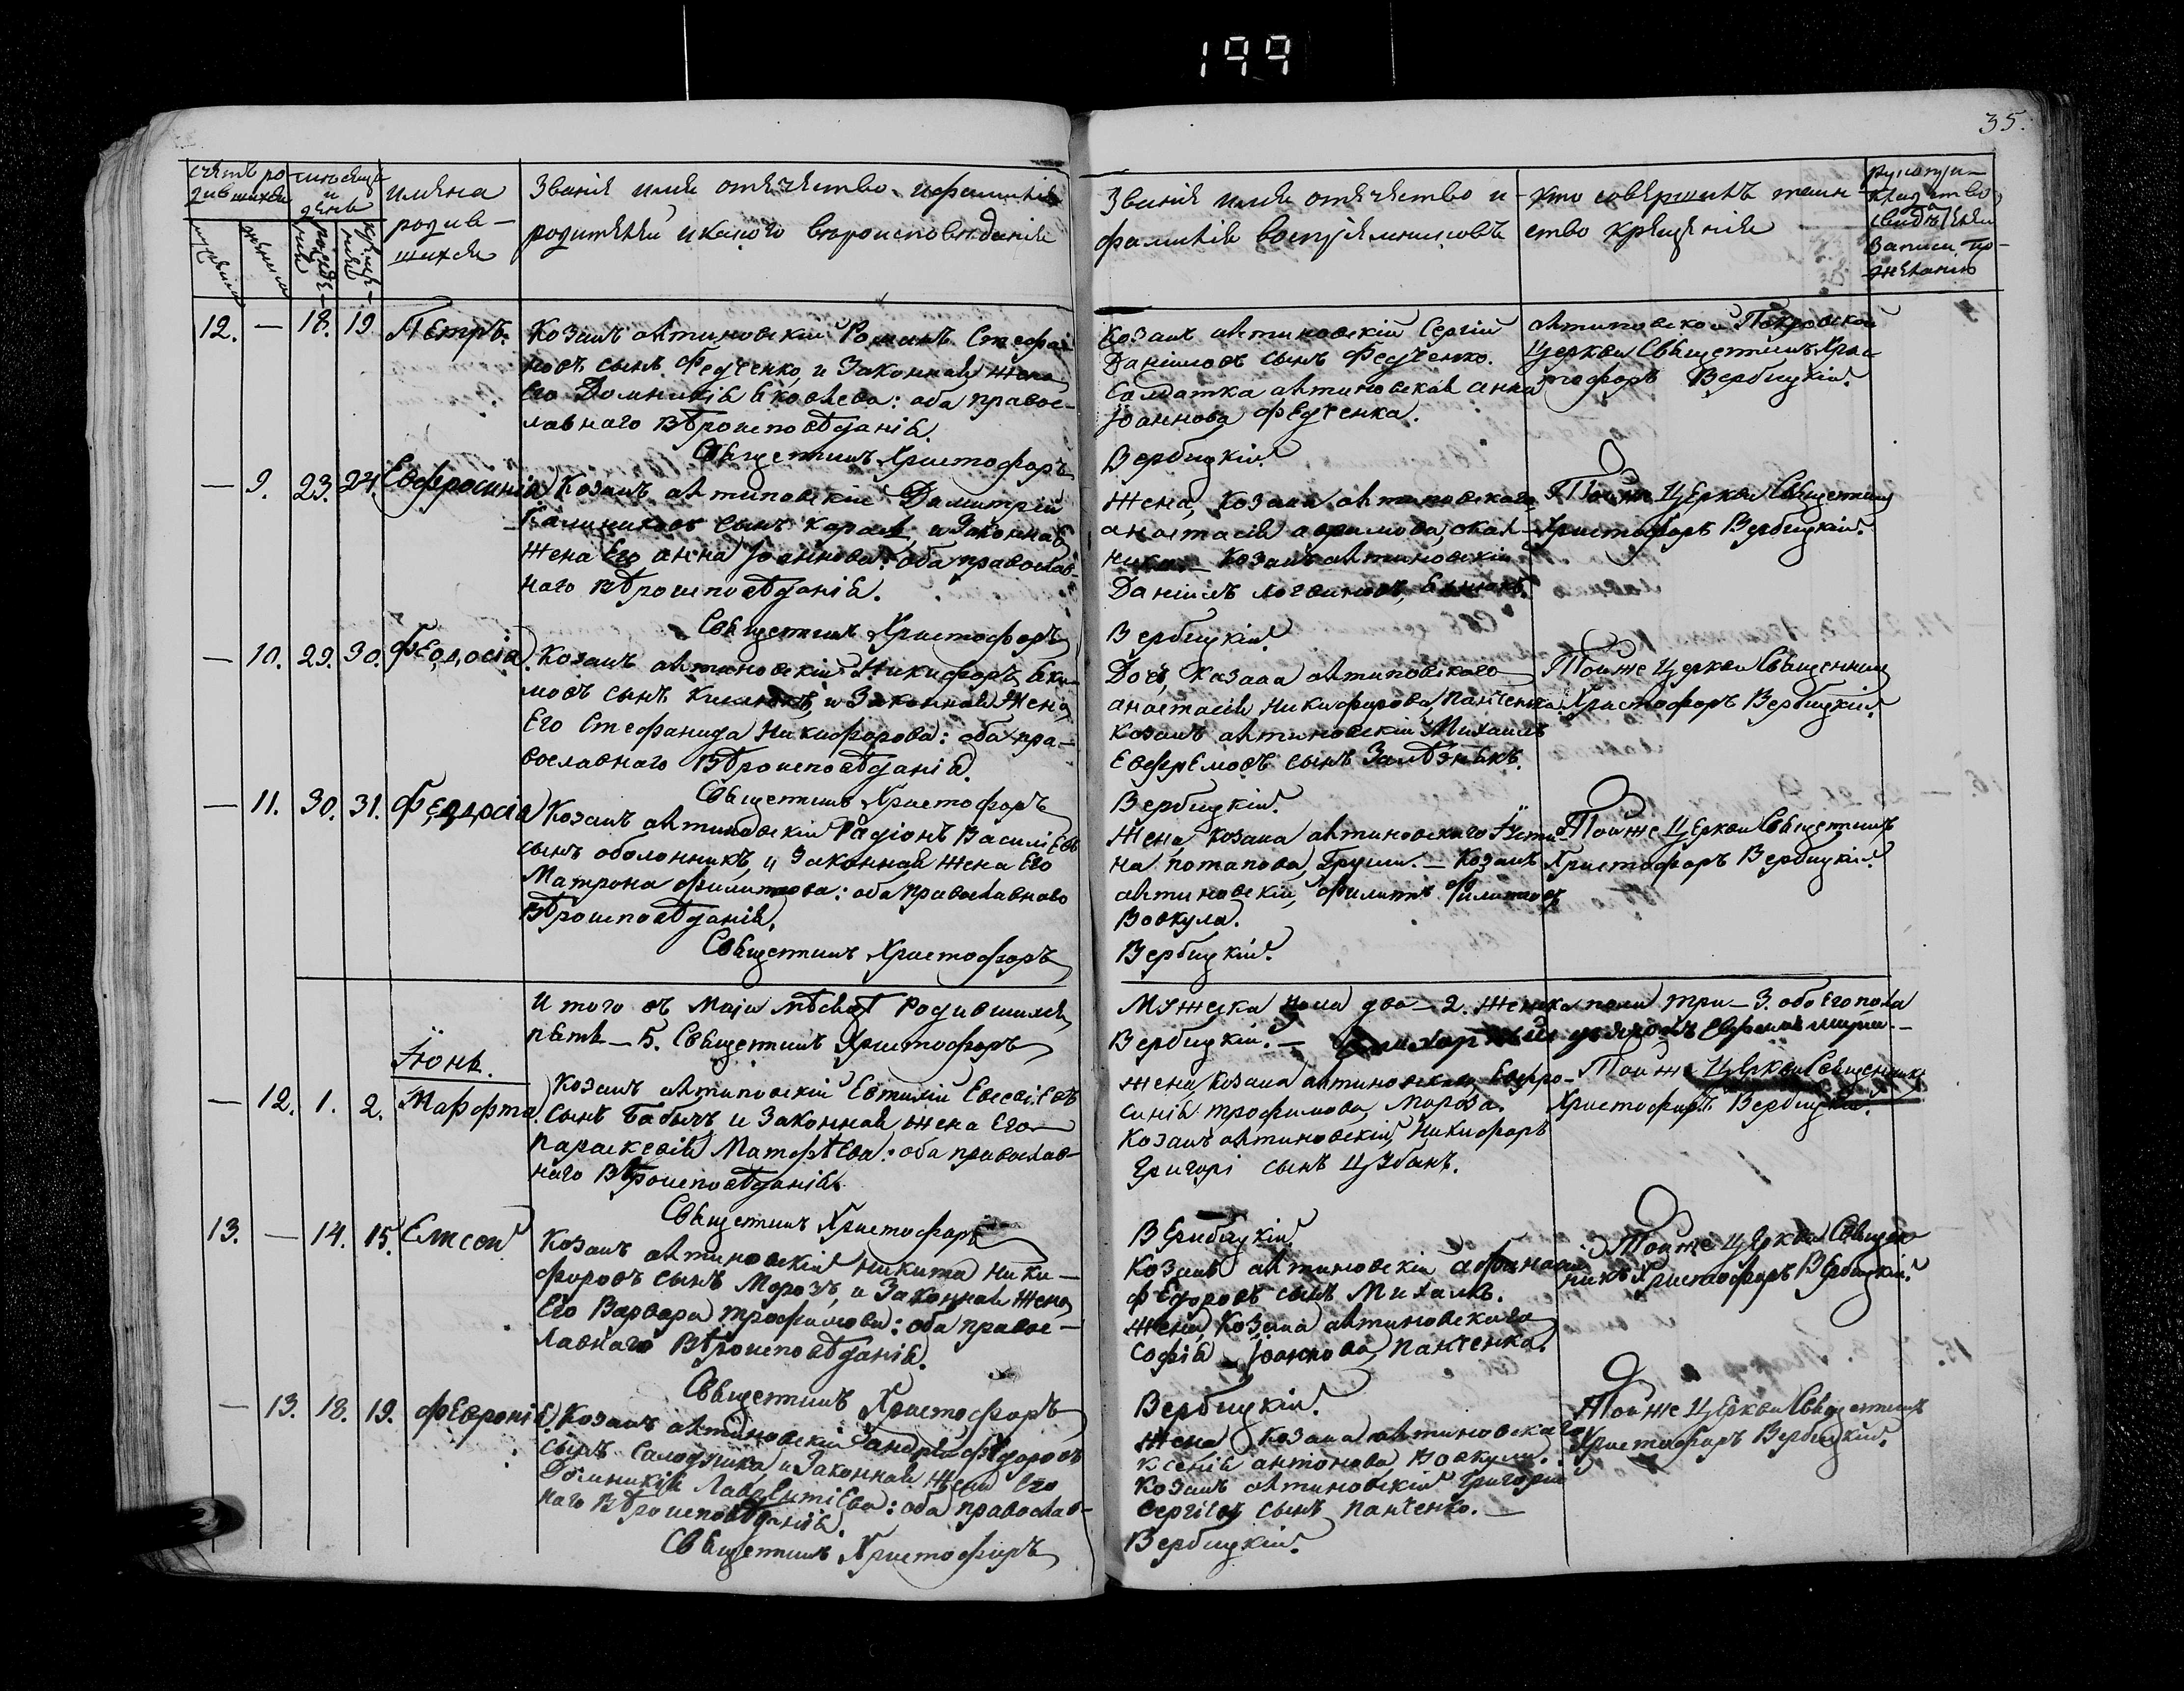 199
35.
счетъ ро
дившихся
мужеска
женска
мѣсяцъ
и
день
рожде-
нія
креще-
нія
имяна
родив-
шихся
Званія имя отечество и фамилія
родителей и какого вѣроисповѣданія
Званія имя отечество и
фамилія воспріемниковъ
кто совершилъ таин
ство крещенія
рукопри-
кладство
свидѣтелей
записи по
желанію
12. — 18. 19 Петръ.
Козакъ антиновскій Романъ Стефа-
новъ сынъ Федченко, и Законная жена
Его Домникія Яковлева: оба правос-
лавнаго вѣроисповѣданія.
Священникъ Христофоръ
Козакъ антиновскій Сергій
Даніиловъ сынъ Федченко.
Салдатка антиновская анна
Іоаннова Федченка.
Вербицкій.
антиновской Покровской
Церкви Священникъ Хрис
тофоръ Вербицкій.
— 9. 23. 24. Евфросинія
Козакъ антиновскій Димитрій
Калиниковъ сынъ Карась, и Законная
жена Его анна Іоаннова: оба православ-
наго вѣроисповѣданія.
Священникъ Христофоръ
Жена, Козака антиновскаго
анастасія
Козакъ антиновскій
Даніилъ логвиновъ,
Вербицкій.
Тойже Церкви Священникъ
Христофоръ Вербицкій.
— 10. 29. 30. Феодосія.
Козакъ антиновскій Никифоръ Яки-
мовъ сынъ и Законная Жена,
Его Стефанида Никифорова: оба пра-
вославнаго Вѣроисповѣданія.
Священникъ Христофоръ
Дочь, Казака антиновскаго
анастасія Никифорова, Панченка.
Козакъ антиновскій Михаилъ
Евфремовъ сынъ
Вербицкій.
Тойже Церкви Священникъ
Христофоръ Вербицкій.
— 11. 30. 31. Феодосія
Козакъ антиновскій Радіонъ Василіевъ
сынъ оболонникъ, и Законная жена Его
Матрона филипова: оба православнаво
вѣроисповѣданія.
Священникъ Христофоръ
Жена, Козака антиновскаго Усти-
на Потапова, Групи. — Козакъ
антиновскій, Филипъ Филиповъ
Вовкула.
Вербицкій.
Тойже Церкви Священникъ
Христофоръ Вербицкій.
Итого въ Маіи мѣсяцѣ Родившихся,
пять — 5. Священникъ Христофоръ
Мужеска пола два — 2. женска пола три — 3. обоего пола
Вербицкій. —
Іюнь.
— 12. 1. 2. Марфта.
Козакъ антиновскій Евтихій Евсевіевъ
сынъ Бабичъ и Законная жена Его
Параскевія Матфѣева: оба православ-
наго Вѣроисповѣданія.
Священникъ Христофоръ
жена, Козака антиновскаго, Евфро-
синія трофимова, Мороза.
Козакъ антиновскій, Никифоръ
Григорі сынъ Цыбань.
Вербицкій.
Тойже Церкви Священникъ
Христофоръ Вербицкій.
13. — 14. 15. Елисей
Козакъ антиновскій никита ники-
форовъ сынъ Морозъ, и Законная Жена,
Его Варвара трофимова: оба правос-
лавнаго Вѣроисповѣданія.
Священникъ Христофоръ
Козакъ антиновскій афанасій
Федоровъ сынъ Михалко.
жена, Козака антиновскаго
Софія Іоаннова, Панченка.
Вербицкій.
Тойже Церкви Священ
никъ Христофоръ Вербицкій.
— 13. 18. 19. Февронія.
Козакъ антиновскій андрей Федоровъ
сынъ и Законная жена Его
Домникія Лаврентіева: оба православ-
наго вѣроисповѣданія.
Священникъ Христофоръ
Жена Козака антиновскаго
Ксенія антонова, Вовкули.
Козакъ антиновскій Григорій
Сергіевъ сынъ Панченко. —
Вербицкій.
Тойже Церкви Священникъ
Христофоръ Вербицкій.